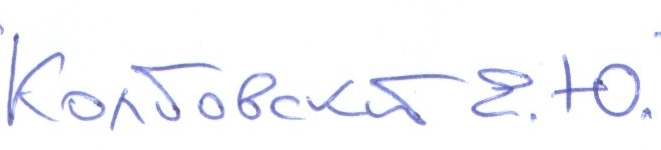 Колбовский Е.Ю.